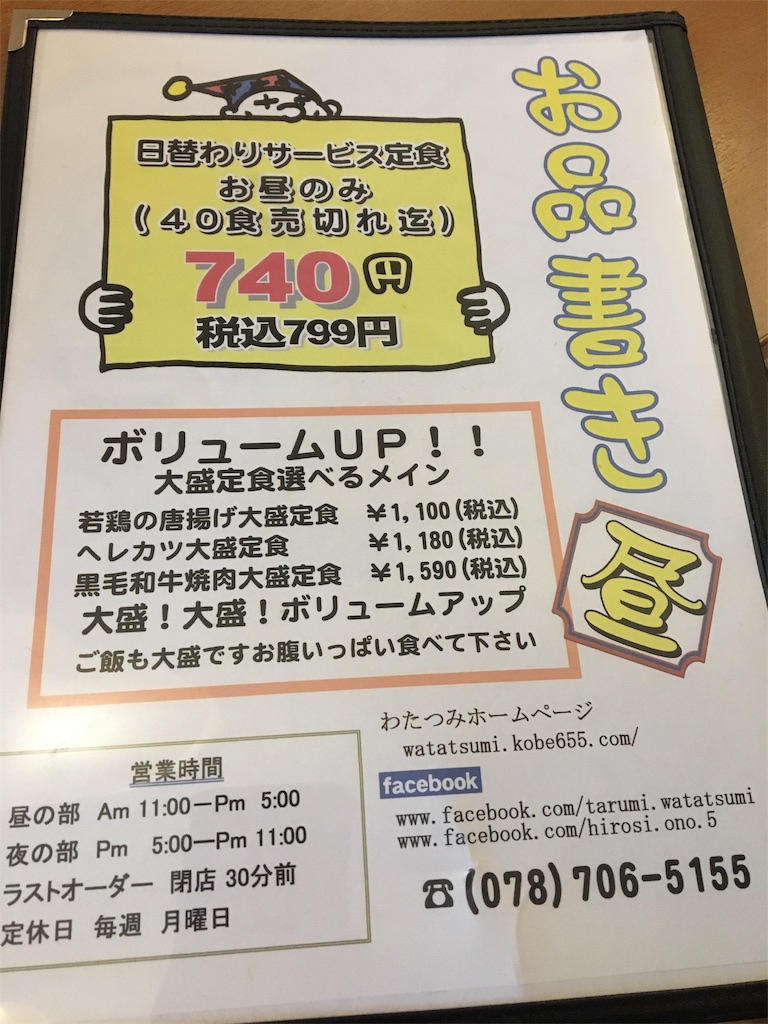 お品書き
昼
日替わりサービス定食
お昼のみ
(40食売切れ迄)
740円
税込799円
ボリュームUP!!
大盛定食選べるメイン
若鶏の唐揚げ大盛定食 ¥1,100(税込)
ヘレカツ大盛定食 ¥1,180(税込)
黒毛和牛焼肉大盛定食 ¥1,590(税込)
大盛!大盛!ボリュームアップ
ご飯も大盛ですお腹いっぱい食べて下さい
営業時間
昼の部 Am 11:00-Pm 5:00
夜の部 Pm 5:00-Pm 11:00
ラストオーダー 閉店 30分前
定休日 毎週 月曜日
わたつみホームページ
watatsumi.kobe655.com/
facebook
www.facebook.com/tarumi.watatsumi
www.facebook.com/hirosi.ono.5
☎(078)706-5155